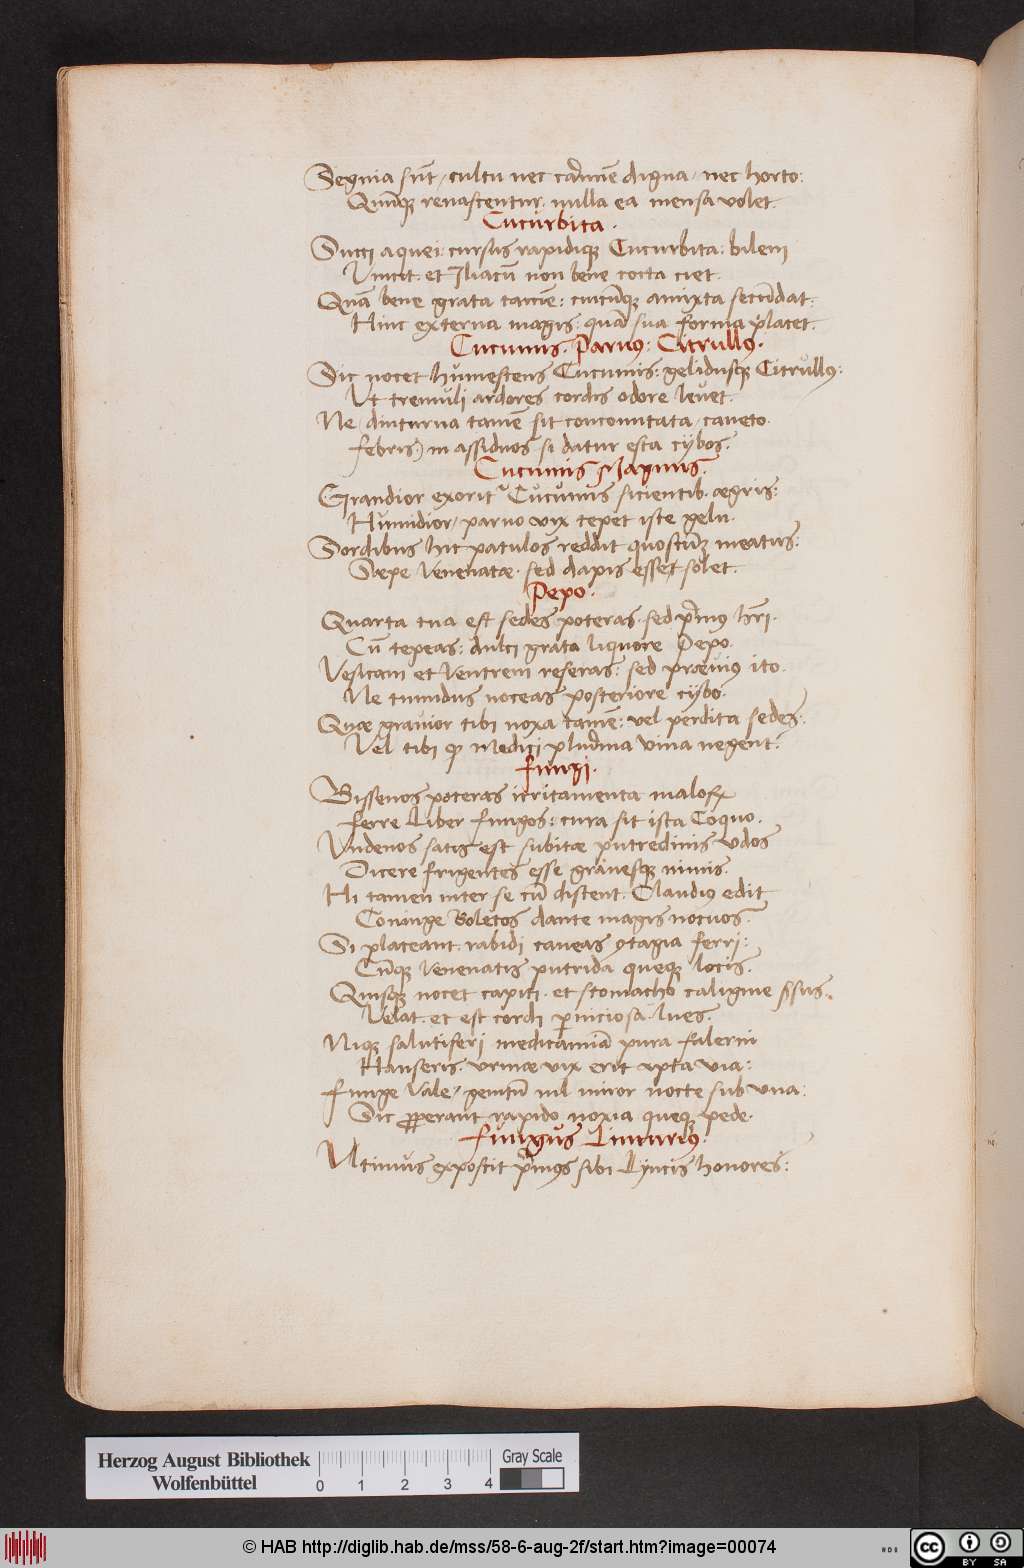 Segnia sūt, cultu nec carmīe digna, nec horto:
Quūq; renascentur. nulla ea mensa volet.
Cucurbita.
Succi aquei: cursus rapidiq; Cucurbita: bilem
Vincit. et Iliacū non bene cocta ciet.
Quā bene grata tamē: cuicūq; amixta secūdat:
Hinc externa magis: quā sua forma placet.
Cucumis. Parvus: Citrullus.
Sic nocet humescens Cucumis: gelidusq; Citrullus:
Vt tremuli ardores cordis odore levet.
Ne (diuturna tamē sit concomitata, caveto.
febris) in assiduos si datur esca cybos.
Cucumis Magnus.
Grandior exorit Cucumis sicientib. ægris:
Humidior, parvo vix tepet iste gelu.
Sordibus hic patulos reddit quoscūq; meatus:
Sæpe venenatæ. sed dapis esset solet.
Pepo.
Quarta tua est sedes poteras. sed p̄mus hr̄i.
Cū tepeas: dulci grata liquore Pepo.
Vesicam et ventrem reseras: sed prævius ito.
Ne tumidus noceas posteriore cybo.
Quæ gravior tibi noxa tamē: vel perdita sedes:
Vel tibi ꝙ Medici plurīma vina negent.
fungi.
Bissenos poteras irritamenta maloꝝ
ferre Liber fungos: cura sit ista Coquo.
Vndenos satis est subitæ putredinis vdos
Dicere frigentes esse gravesq; nimis.
Hi tamen inter se cū distent. Claudius edit
Coniuge Boletos dante magis nocuos.
Si placeant. rabidi caveas ꝯtagia ferri:
Cūq; venenatis putrida queq; locis.
Quisq; nocet capiti. et stomacho caligine
Velat. et est cordi p̱niciosa lues.
Niq; salutiferi medicamīa pura falerni
Hauseris. vrinæ vix erit apta via:
funge vale, genitū nil miror nocte sub vna:
Sic ꝓperant rapido noxia queq; pede.
fungus Lincurius.
Vltimus exposcit p̄mos sibi Lyncis honores:
Herzog August Bibliothek
Wolfenbüttel
0 1 2 3 4
Gray Scale
© HAB http://diglib.hab.de/mss/58-6-aug-2f/start.htm?image=00074
cc BY SA